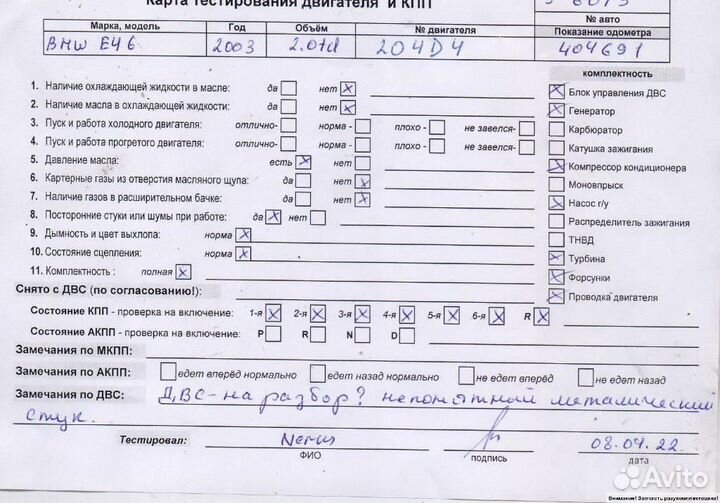 Карта тестирования двигателя и КПП
Марка, модель Год Объём № двигателя № авто Показание одометра
BMW E46 2003 2.0td 204D4 404691
комплектность
1. Наличие охлаждающей жидкости в масле: да нет X
X Блок управления ДВС
2. Наличие масла в охлаждающей жидкости: да нет X
X Генератор
3. Пуск и работа холодного двигателя: отлично- норма - плохо - не завелся-
Карбюратор
4. Пуск и работа прогретого двигателя: отлично- норма - плохо - не завелся-
Катушка зажигания
5. Давление масла: есть X нет
X Компрессор кондиционера
6. Картерные газы из отверстия масляного щупа: да нет X
Моновпрыск
7. Наличие газов в расширительном бачке: да нет X
X Насос г/у
8. Посторонние стуки или шумы при работе: да X нет
Распределитель зажигания
9. Дымность и цвет выхлопа: норма X
ТНВД
10. Состояние сцепления: норма X
X Турбина
11. Комплектность : полная X
X Форсунки
Снято с ДВС (по согласованию!):
X Проводка двигателя
Состояние КПП - проверка на включение: 1-я X 2-я X 3-я X 4-я X 5-я X 6-я X R X
Состояние АКПП - проверка на включение: P R N D
Замечания по МКПП:
Замечания по АКПП: едет вперёд нормально едет назад нормально не едет вперёд не едет назад
Замечания по ДВС: ДВС - на разбор? непонятный металический
стук.
Тестировал: 08.04.22
ФИО подпись дата
Avito
Внимание! Запчасть разукомплектована!